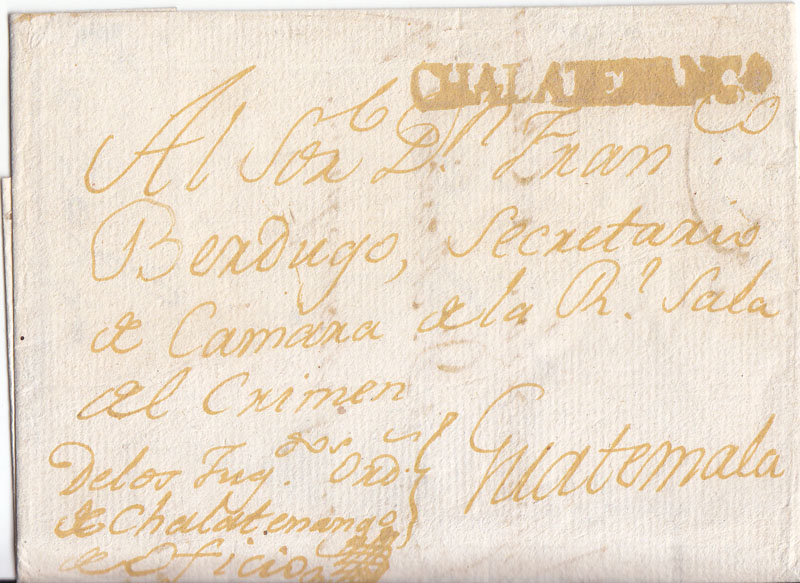 CHALATENANGO
Al Sor. Dn. Franco.
Berdugo, Secretario
de Camara de la Rl. Sala
del Crimen
Delos Juzgdos. Ord.
de Chalatenango
de Oficio
Guatemala